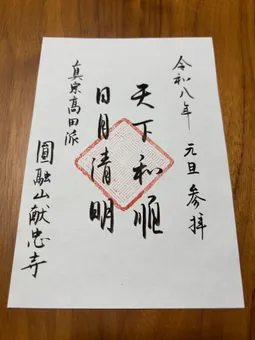 令和八年 元旦 参拝
天下和順
日月清明
真宗高田派
圓融山献忠寺